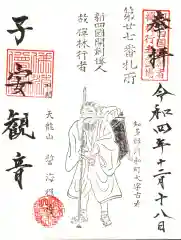 奉拝
令和四年十二月十八日
第廿七番札所
知多郡河和町大字古布
新四国開創偉人
故保林行者
子安観音
天龍山
誓海